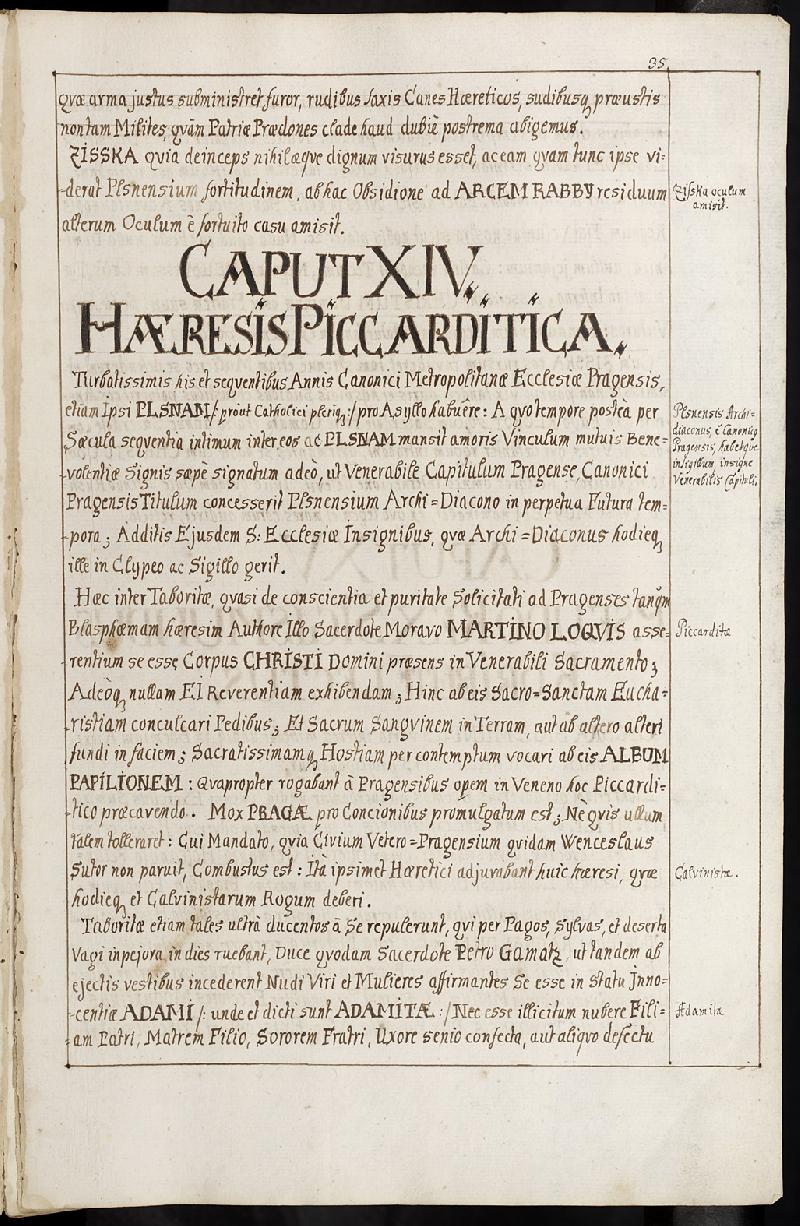 35.
qvæ arma justus subministret furor, rudibus saxis Canes Hæreticos, sudibusq præustis
non tam Milites, qvàm Patriæ Prædones clade haud dubiè postrema abigemus.
ZISSKA qvia deinceps nihil æqve dignum visurus esset, ac eam, qvam tunc ipse vi-
derat Plsnensium fortitudinem, ab hac Obsidione ad ARCEM RABBY residuum
alterum Oculum è fortuito casu amisit.
Zisska oculum
amisit.
CAPUT XIV.
HÆRESIS PICCARDITICA.
Turbatissimis his et seqventibus Annis Canonici Metropolitanæ Ecclesiæ Pragensis,
etiam Ipsi PLSNAM /: prout Catholici pleriq; :/ pro Asyllo habuêre: A qvo tempore posteà per
Sæcula seqventia intimum inter eos ac PLSNAM mansit amoris Vinculum mutuis Bene-
volentiæ Signis sæpè signatum adeò, ut Venerabile Capitulum Pragense, Canonici
Pragensis Titulum concesserit Plsnensium Archi=Diacono in perpetua Futura tem-
pora; Additis Ejusdem S: Ecclesiæ Insignibus, qvæ Archi=Diaconus hodieq
ille in Clypeo ac Sigillo gerit.
Plsnensis Archi=
diaconus, è Canonicis
Pragensis, habetque
insignium, insigne
Venerabilis Capituli.
Hæc inter Taboritæ, qvasi de conscientia et puritate Soliciti ad Pragenses tanqm
Blasphæmam hæresim Authore Illo Sacerdote Moravo MARTINO LOQVIS asse-
rentium se esse Corpus CHRISTI Domini præsens in Venerabili Sacramento;
Adeòq nullam EI Reverentiam exhibendam; Hinc ab eis Sacro=Sanctam Eucha-
ristiam conculcari Pedibus; Et Sacrum Sangvinem in Terram, aut ab altero alteri
fundi in faciem; Sacratissimamq Hostiam per contemptum vocari ab eis ALBUM
PAPILIONEM: Qvapropter rogabant à Pragensibus opem in Veneno hoc Piccardi-
tico præcavendo. Mox PRAGÆ pro Concionibus promulgatum est; Nè qvis ullum
talem tolleraret: Cui Mandato, qvia Civium Vetero=Pragensium qvidam Wenceslaus
Sutor non paruit, Combustus est: Ità ipsimet Hæretici adjurabant huic hæresi, qvæ
hodieq et Calvinistarum Rogum deberi.
Piccarditæ
Calvinistæ.
Taboritæ etiam tales ultrà ducentos à Se repulerunt, qvi per Pagos, Sylvas, et deserta
Vagi in pejora in dies ruebant, Duce qvodam Sacerdote Petro Gamatz, ut tandem ab
ejectis vestibus incederent Nudi Viri et Mulieres affirmantes Se esse in Statu Inno-
centiæ ADAMI /: unde et dicti sunt ADAMITÆ :/ Nec esse illicitum nubere Fili-
am Patri, Matrem Filio, Sororem Fratri, Uxore senio confecta, aut aliqvo defectu
Ædamitæ